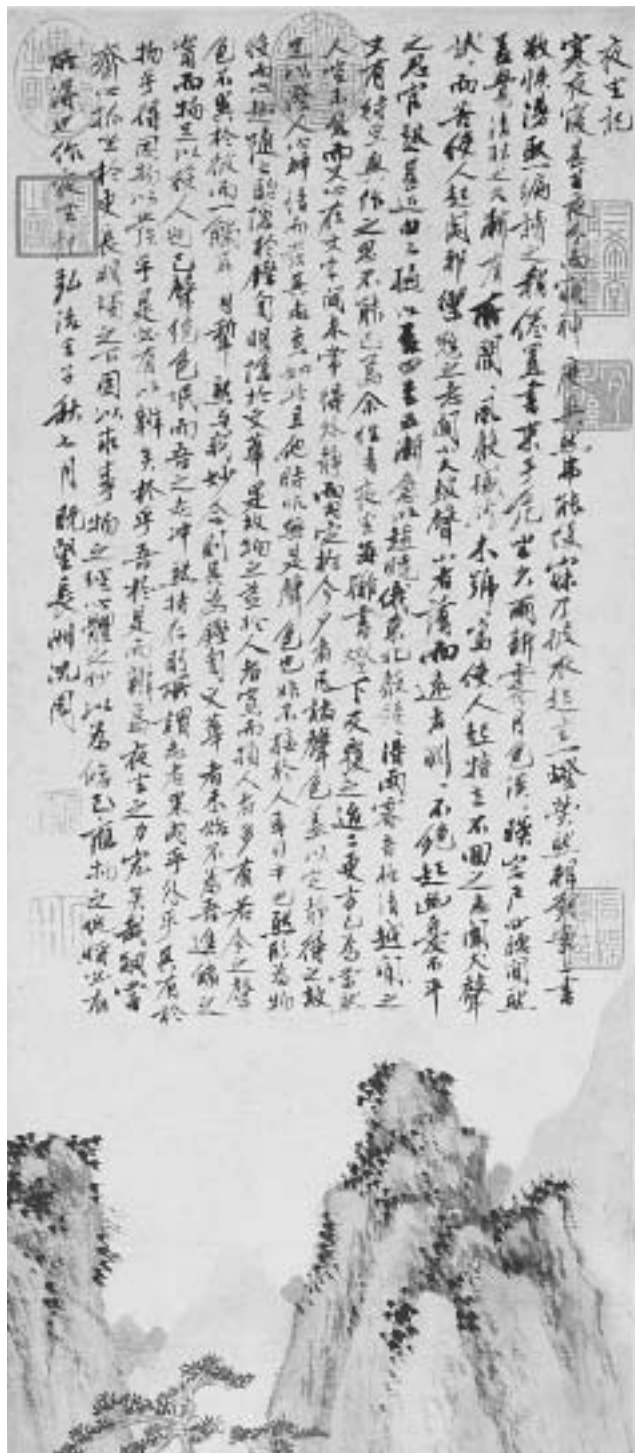 夜坐記
寒夜寢甚甘夜分而寤神度爽然弗能復寐乃披衣起坐一燈熒然相對案上書
數帙漫取一編讀之稍倦置書束手危坐久雨新霽月色淡淡映窗戶四聽闃然
蓋覺清耿之久漸有所聞聞風聲撼竹木號號鳴使人起特立不回之志聞犬聲
狺狺而苦使人起閑邪禦寇之志聞小大鼓聲小者薄而遠者淵淵不絕起幽憂不平
之思官鼓甚近由三撾以至四至五漸急以趨曉俄東北聲鐘鐘得雨霽音極清越聞之
又有待旦興作之思不能已焉余性喜夜坐每攤書燈下反覆之迨二更方已為當然
人喧未息而又心在文字間未常得外靜而內定於今夕者凡諸聲色蓋以定靜得之故
足以澄人心神情而發其志意如此且他時非無是聲色也非不接於人耳目中也然形為物
役而心趣隨之聰隱於鏗訇明隱於文華是故物之益於人者寡而損人者多有若今之聲
色不異於彼而一觸耳目犁然與我妙合則其為鏗訇文華者未始不為吾進修之
資而物足以役人也已聲絕色泯而吾之志冲然特存則所謂志者果內乎外乎其有於
物乎得因物以發乎是必有以辨矣於乎吾於是而辨焉夜坐之力宏矣哉嗣當
齋心孤坐於更長明燭之下因以求事物之理心體之妙以為修己應物之地將必有
所得也作夜坐記弘治壬子秋七月既望長洲沈周